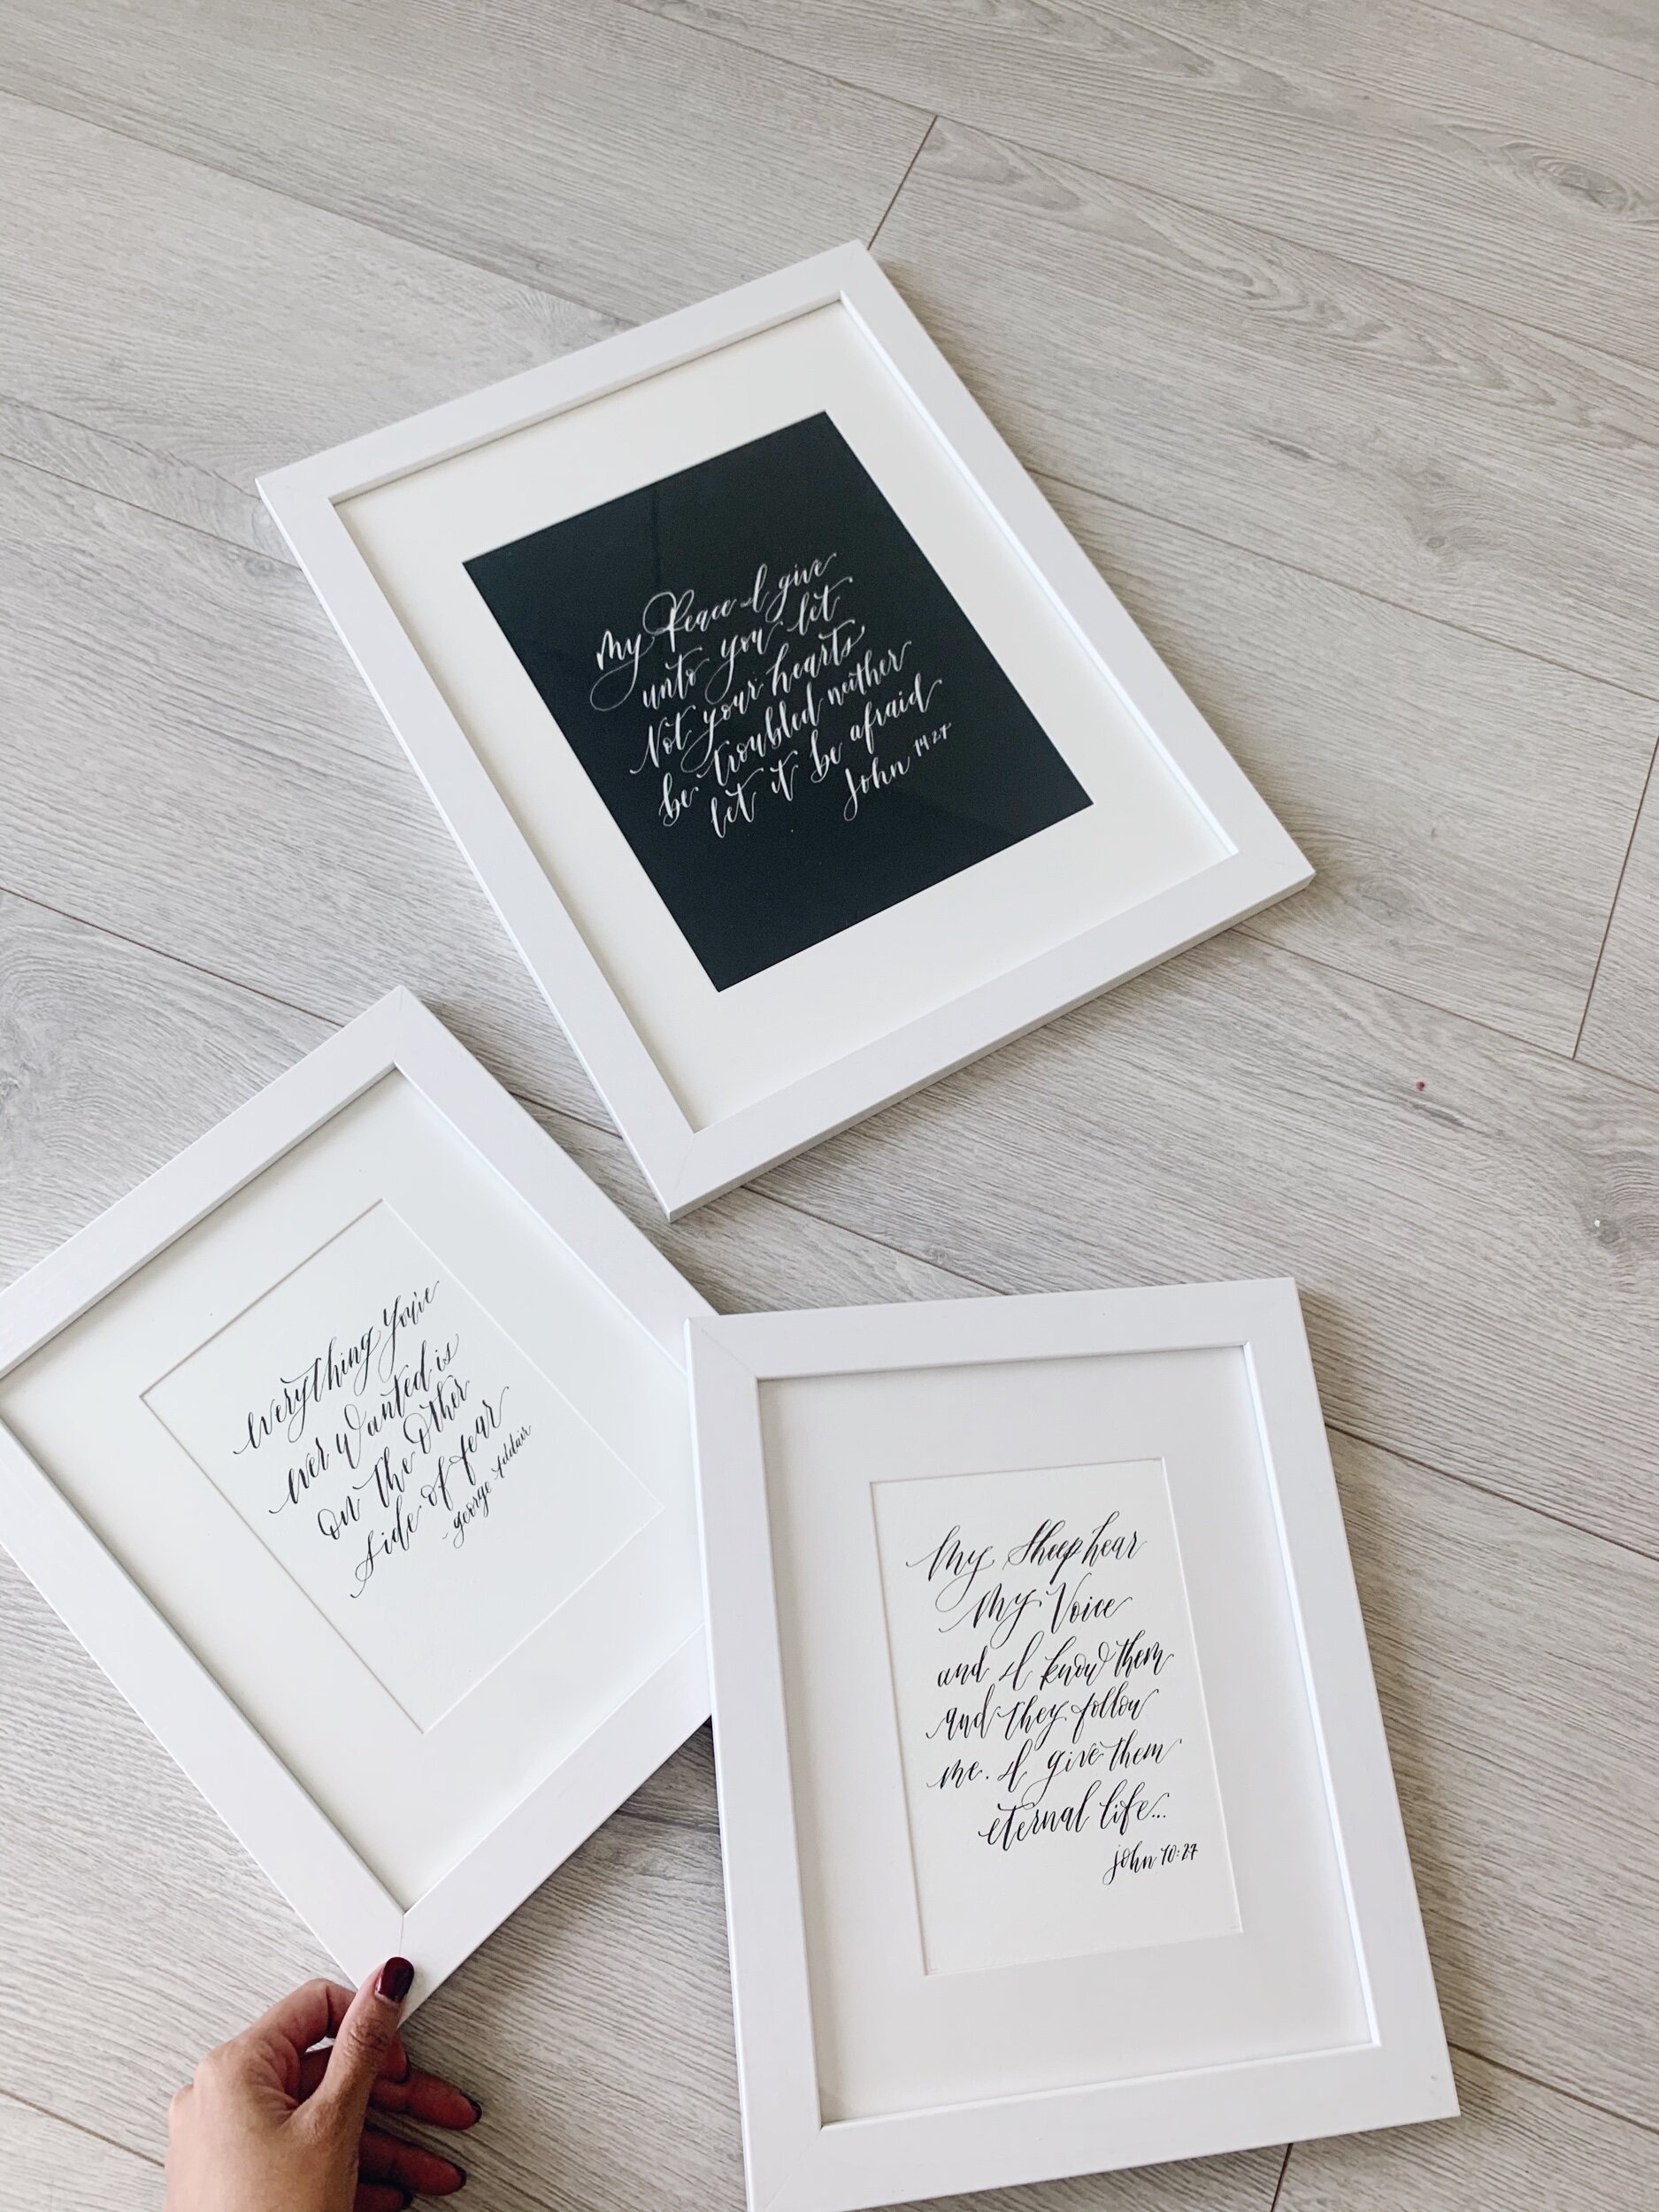 My Peace I give
unto you let
Not your hearts
be troubled neither
let it be afraid
John 14:27
Everything You've
Ever Wanted is
on The Other
side of fear
-George Addair
My Sheep hear
My Voice
and I know them
and they follow
me. I give them
eternal life...
john 10:27